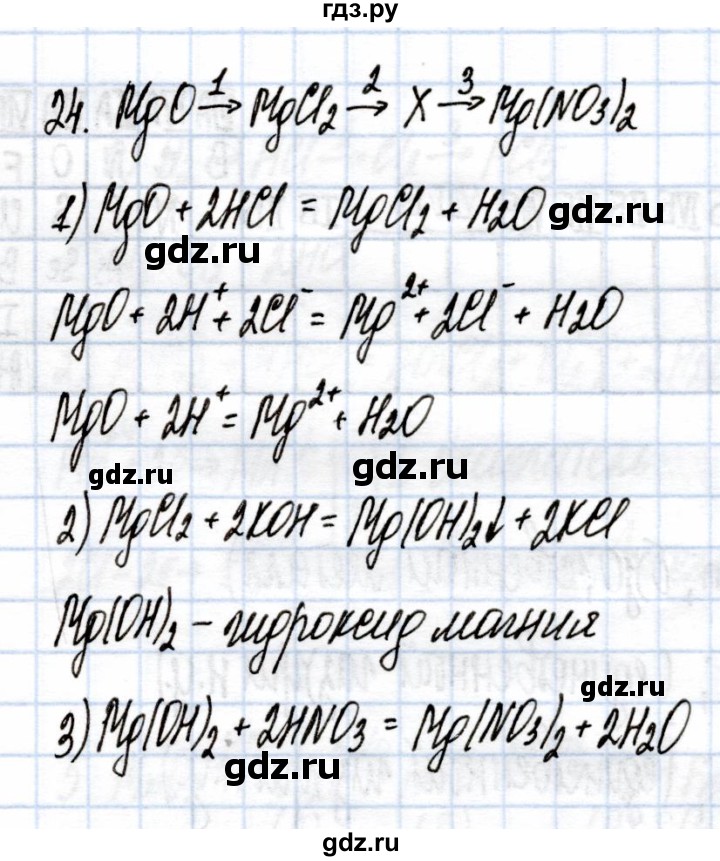 гдз.ру
24. MgO 1→ MgCl2 2→ X 3→ Mg(NO3)2
1) MgO + 2HCl = MgCl2 + H2O gdz.ru
gdz.ru
MgO + 2H⁺ + 2Cl⁻ = Mg²⁺ + 2Cl⁻ + H2O
MgO + 2H⁺ = Mg²⁺ + H2O
gdz.ru gdz.ru
2) MgCl2 + 2KOH = Mg(OH)2↓ + 2KCl
Mg(OH)2 – гидроксид магния
gdz.ru
3) Mg(OH)2 + 2HNO3 = Mg(NO3)2 + 2H2O
gdz.ru
gdz.ru